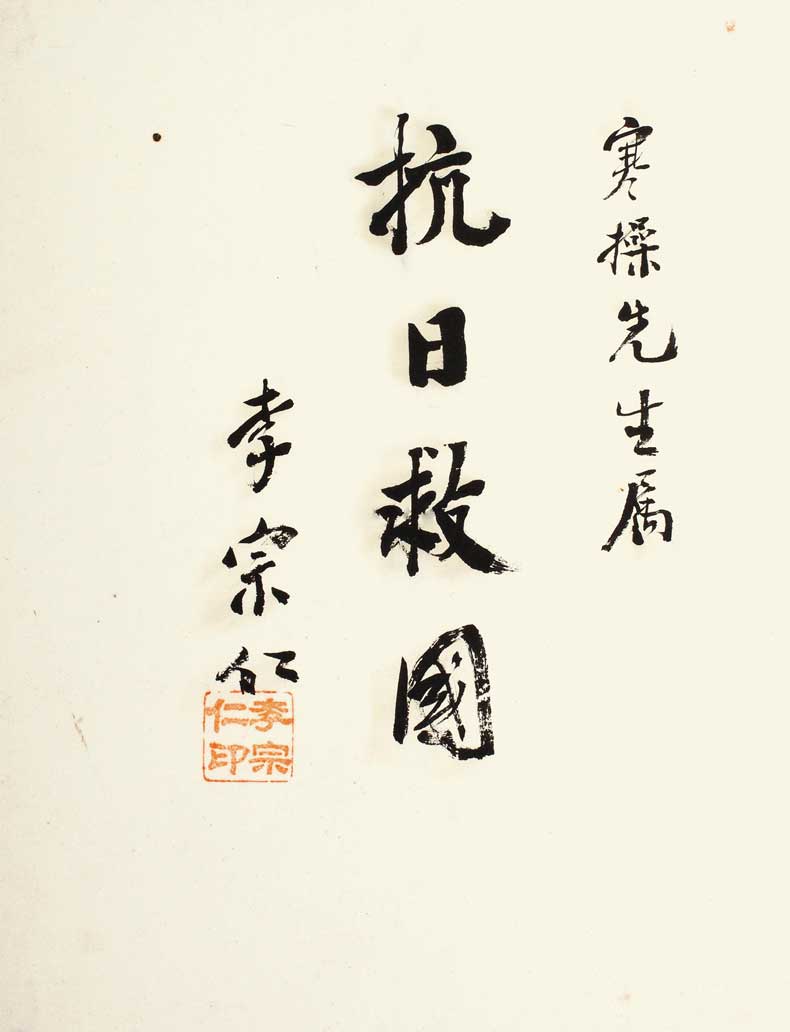 寒操先生属
抗日救國
李宗仁
李宗仁印